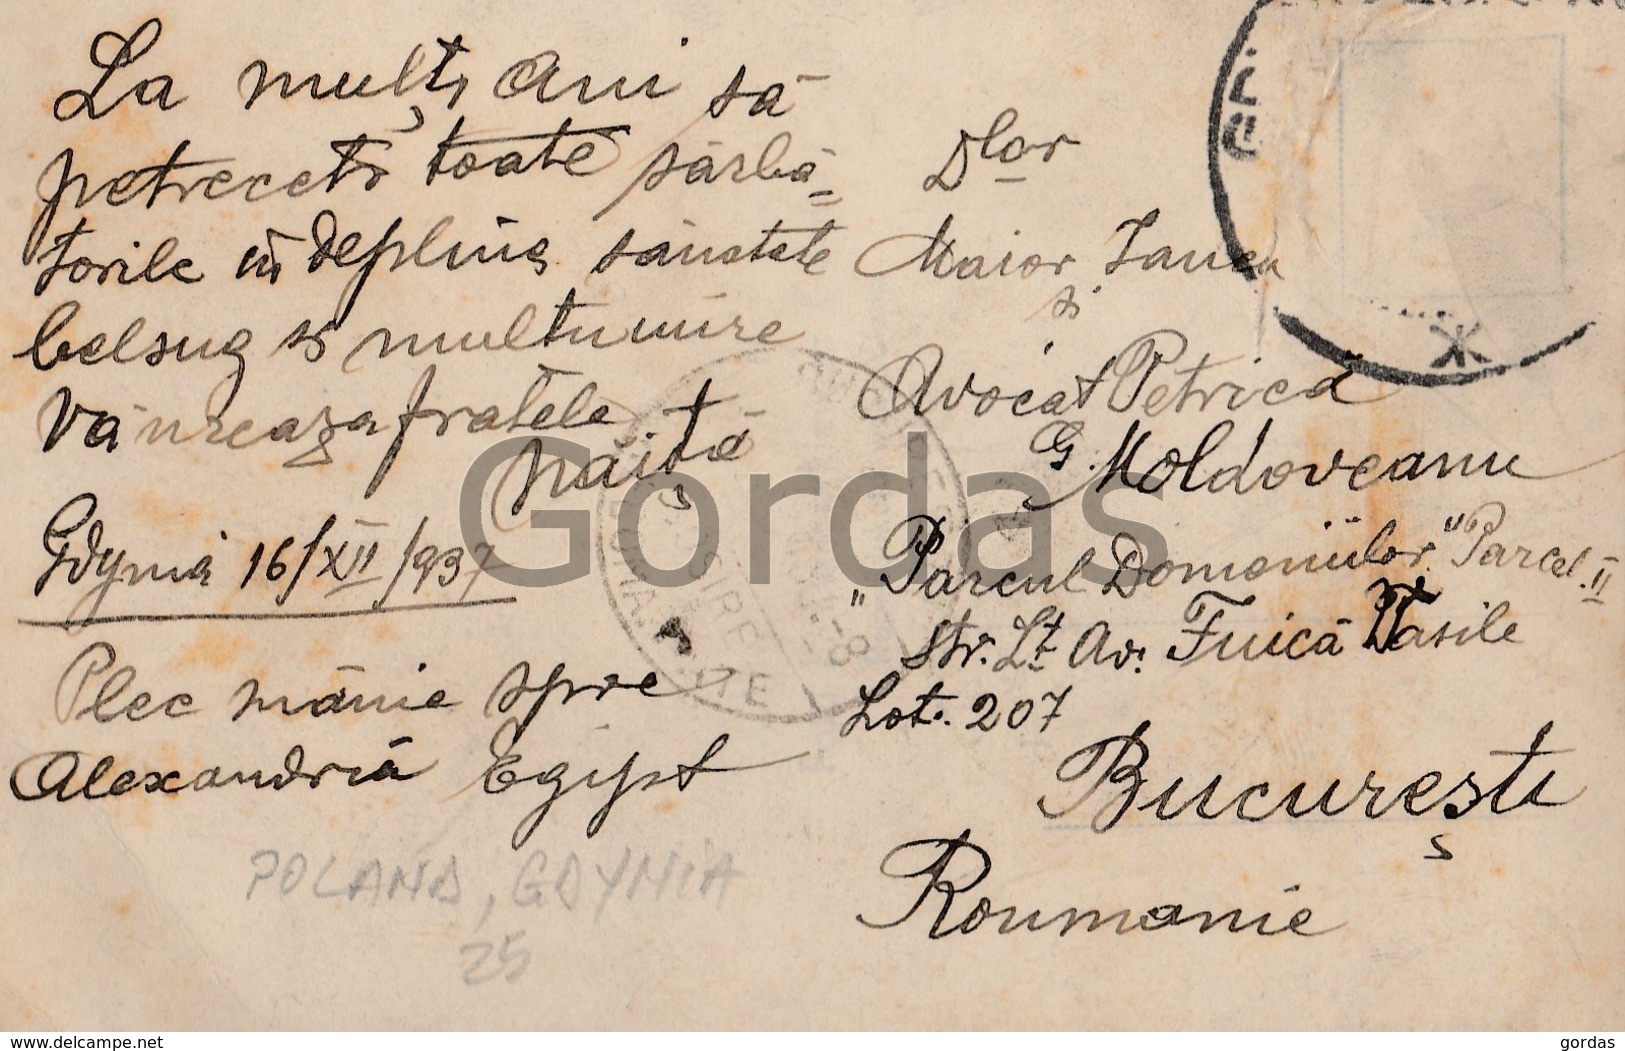 La mulți ani să
petreceți toate sărbă=
torile în deplină sănătate
belșug și mulțumire
Vă urează fratele
Păiță
Gdynia 16/XII/1937
Plec mâine spre
Alexandria Egypt
POLAND, GDYNIA
25
Dlor
Maior Iancu
și
Avocat Petrică
G. Moldoveanu
"Parcul Domeniilor" Parcel. II
Str. Lt. Av. Fuică Vasile
Lot. 207
București
Roumanie
Gordas
www.delcampe.net
gordas